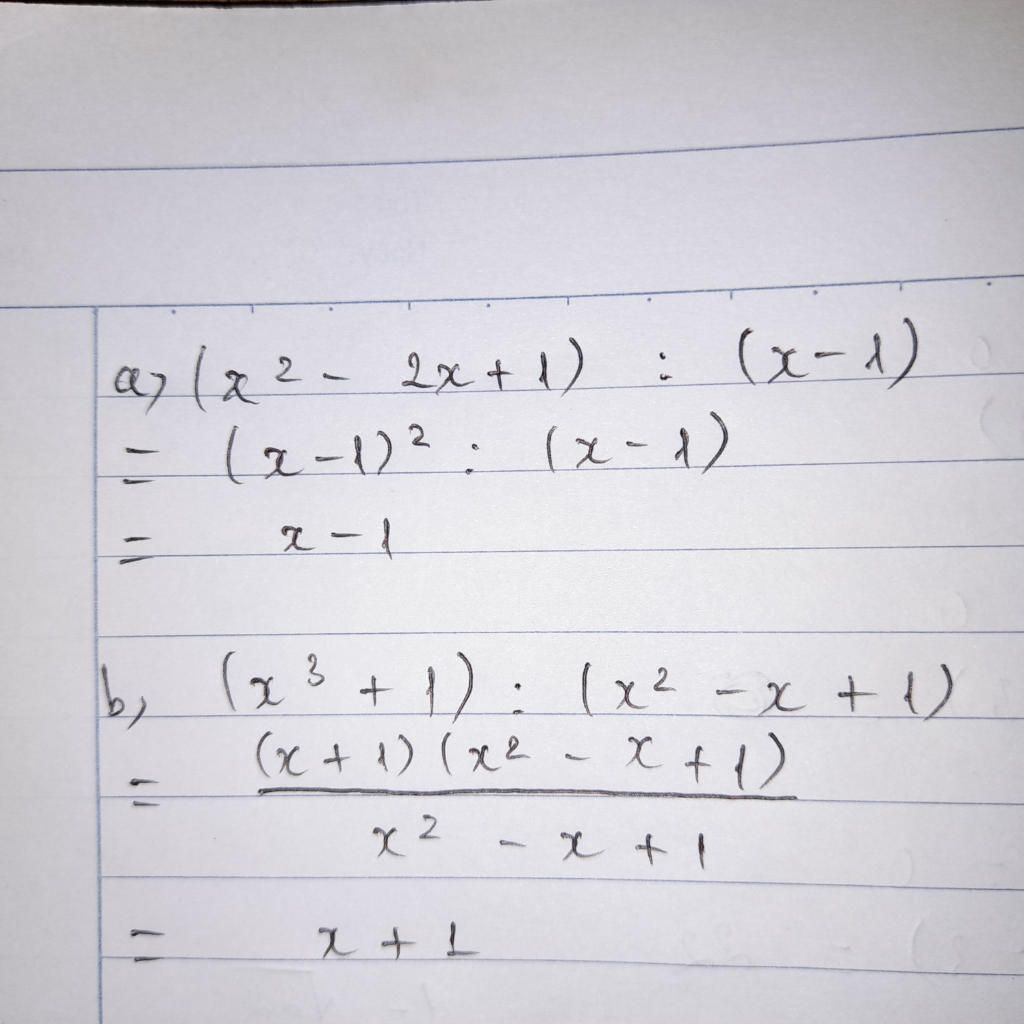 a, (x² - 2x + 1) : (x - 1)
= (x - 1)² : (x - 1)
= x - 1
b, (x³ + 1) : (x² - x + 1)
= (x + 1) (x² - x + 1)
x² - x + 1
= x + 1